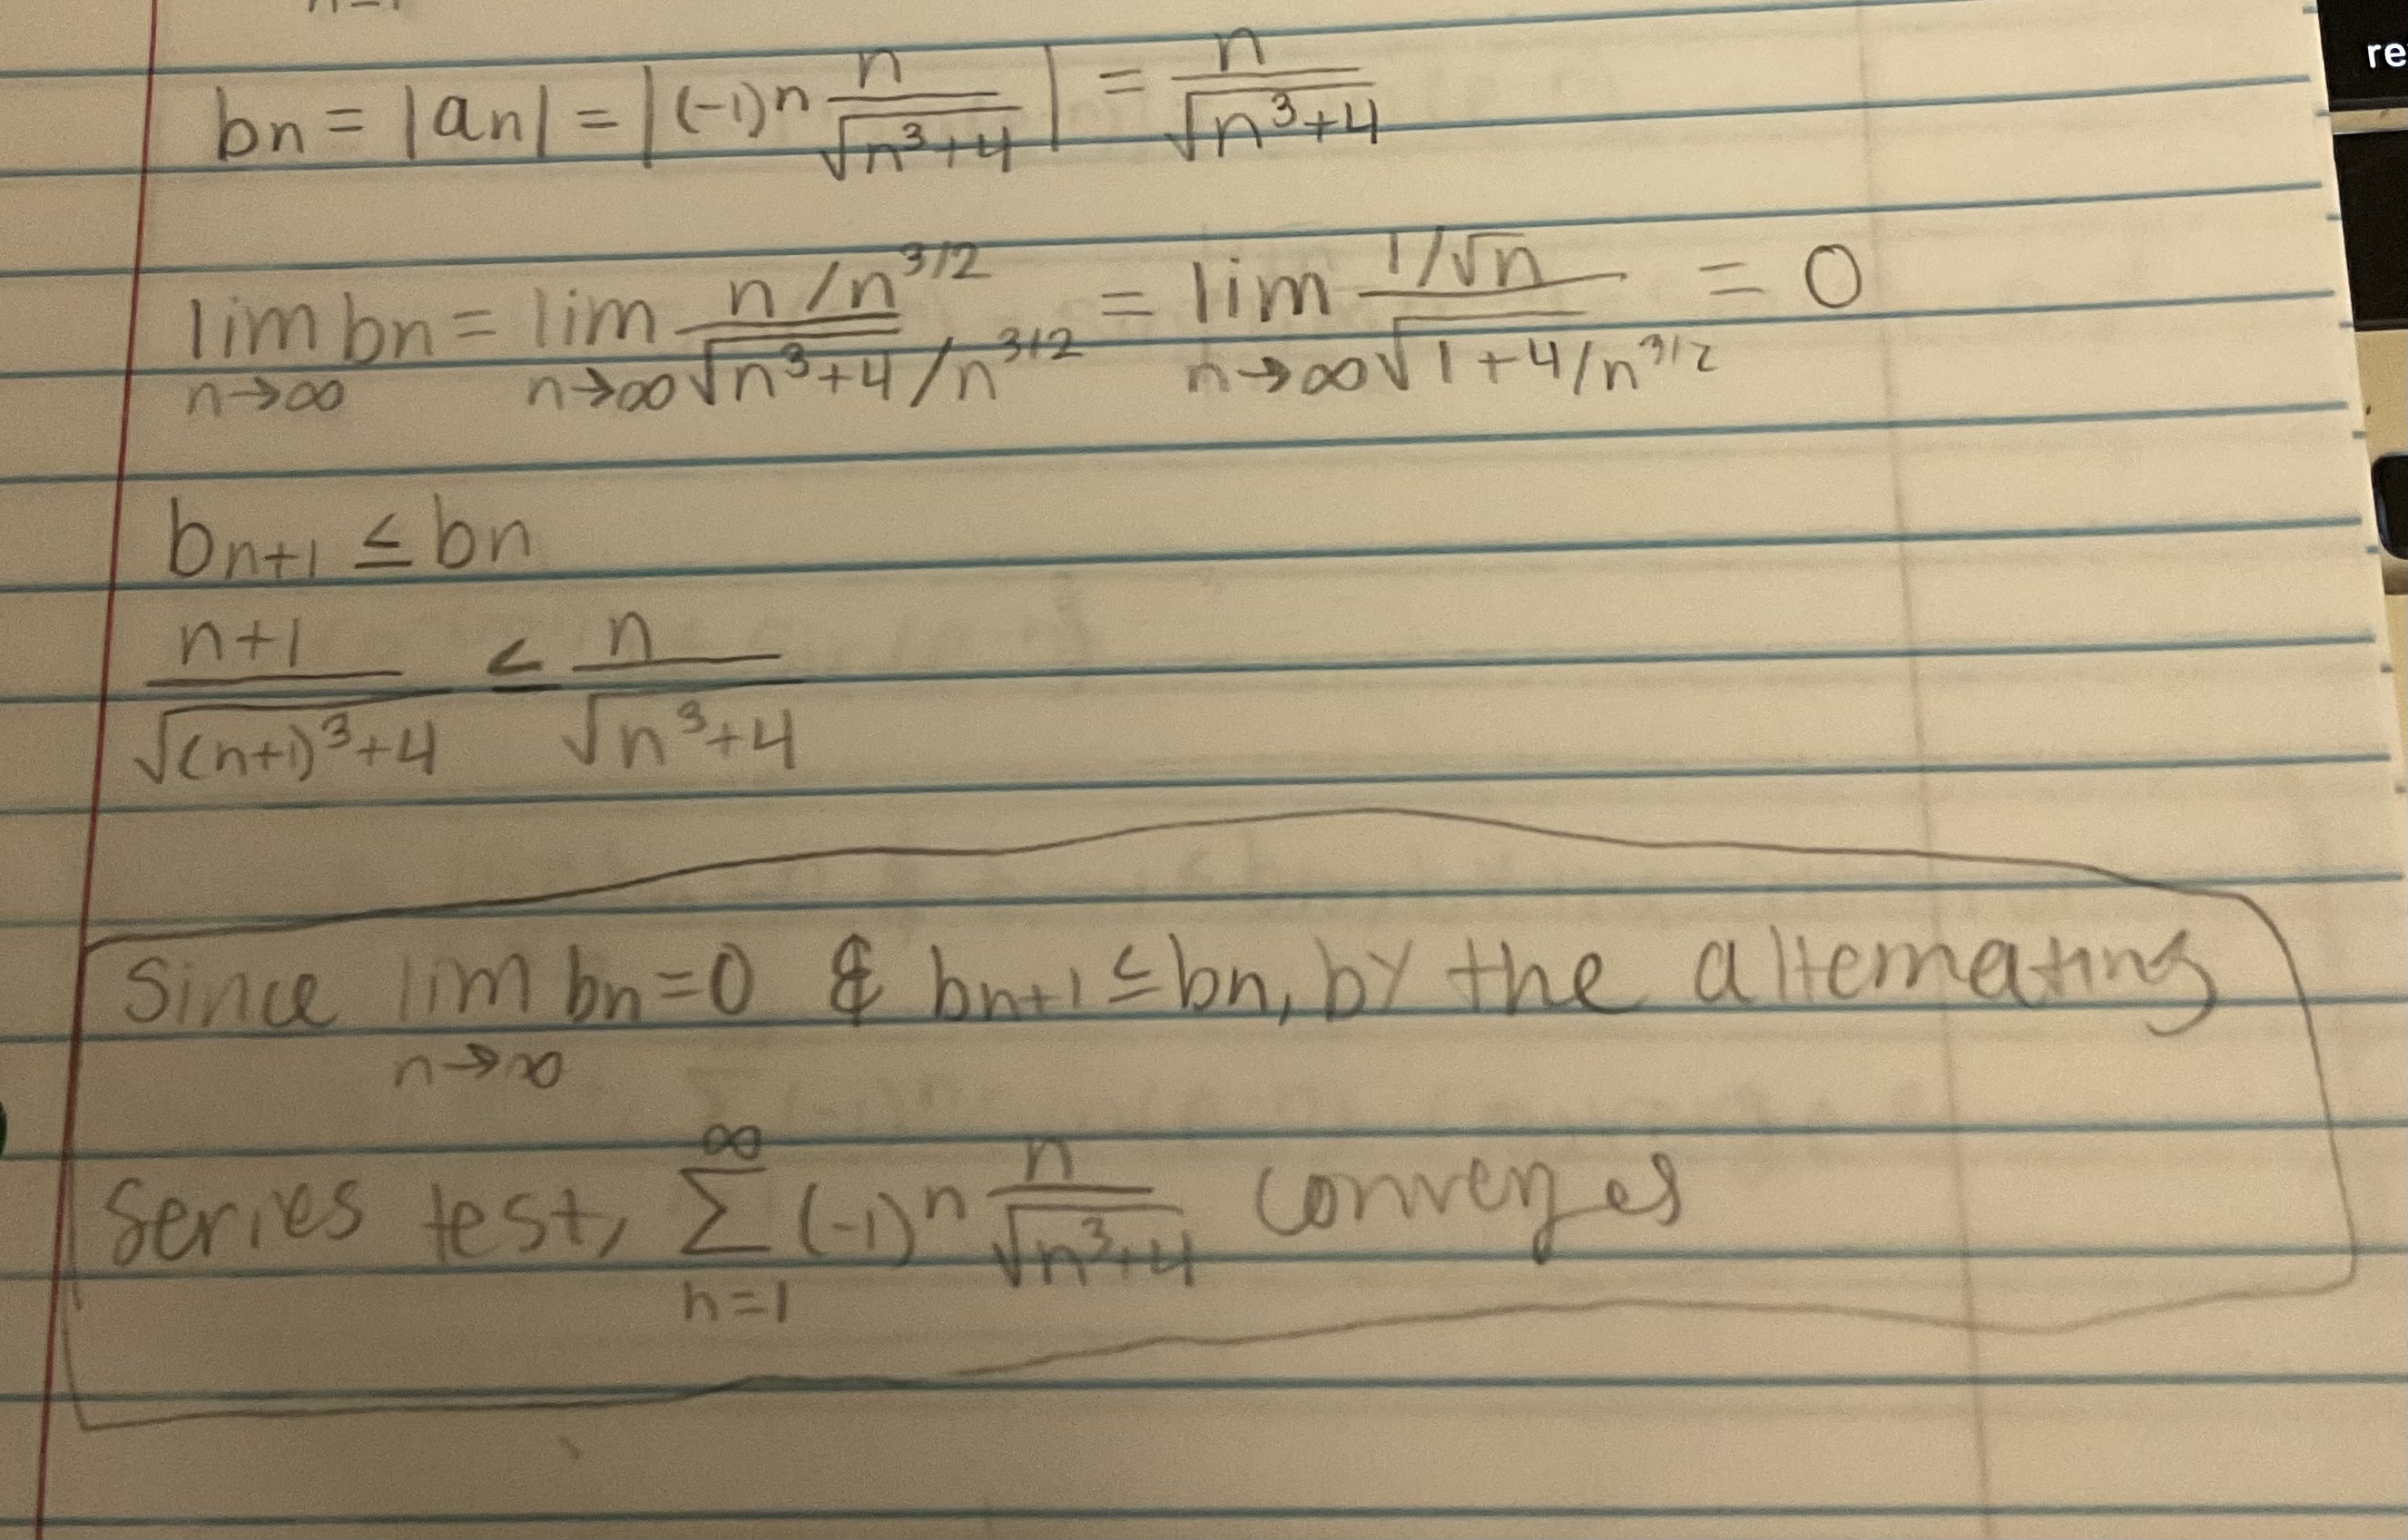 bn = |an| = |(-1)^n n/√(n^3+4)| = n/√(n^3+4)
lim n→∞ bn = lim n→∞ (n/n^3/2)/(√(n^3+4)/n^3/2) = lim n→∞ (1/√n)/√(1+4/n^3/2) = 0
bn+1 ≤ bn
(n+1)/√((n+1)^3+4) ≤ n/√(n^3+4)
Since lim n→∞ bn=0 & bn+1 ≤ bn, by the alternating
Series test, ∑ n=1 ∞ (-1)^n n/√(n^3+4) converges
re